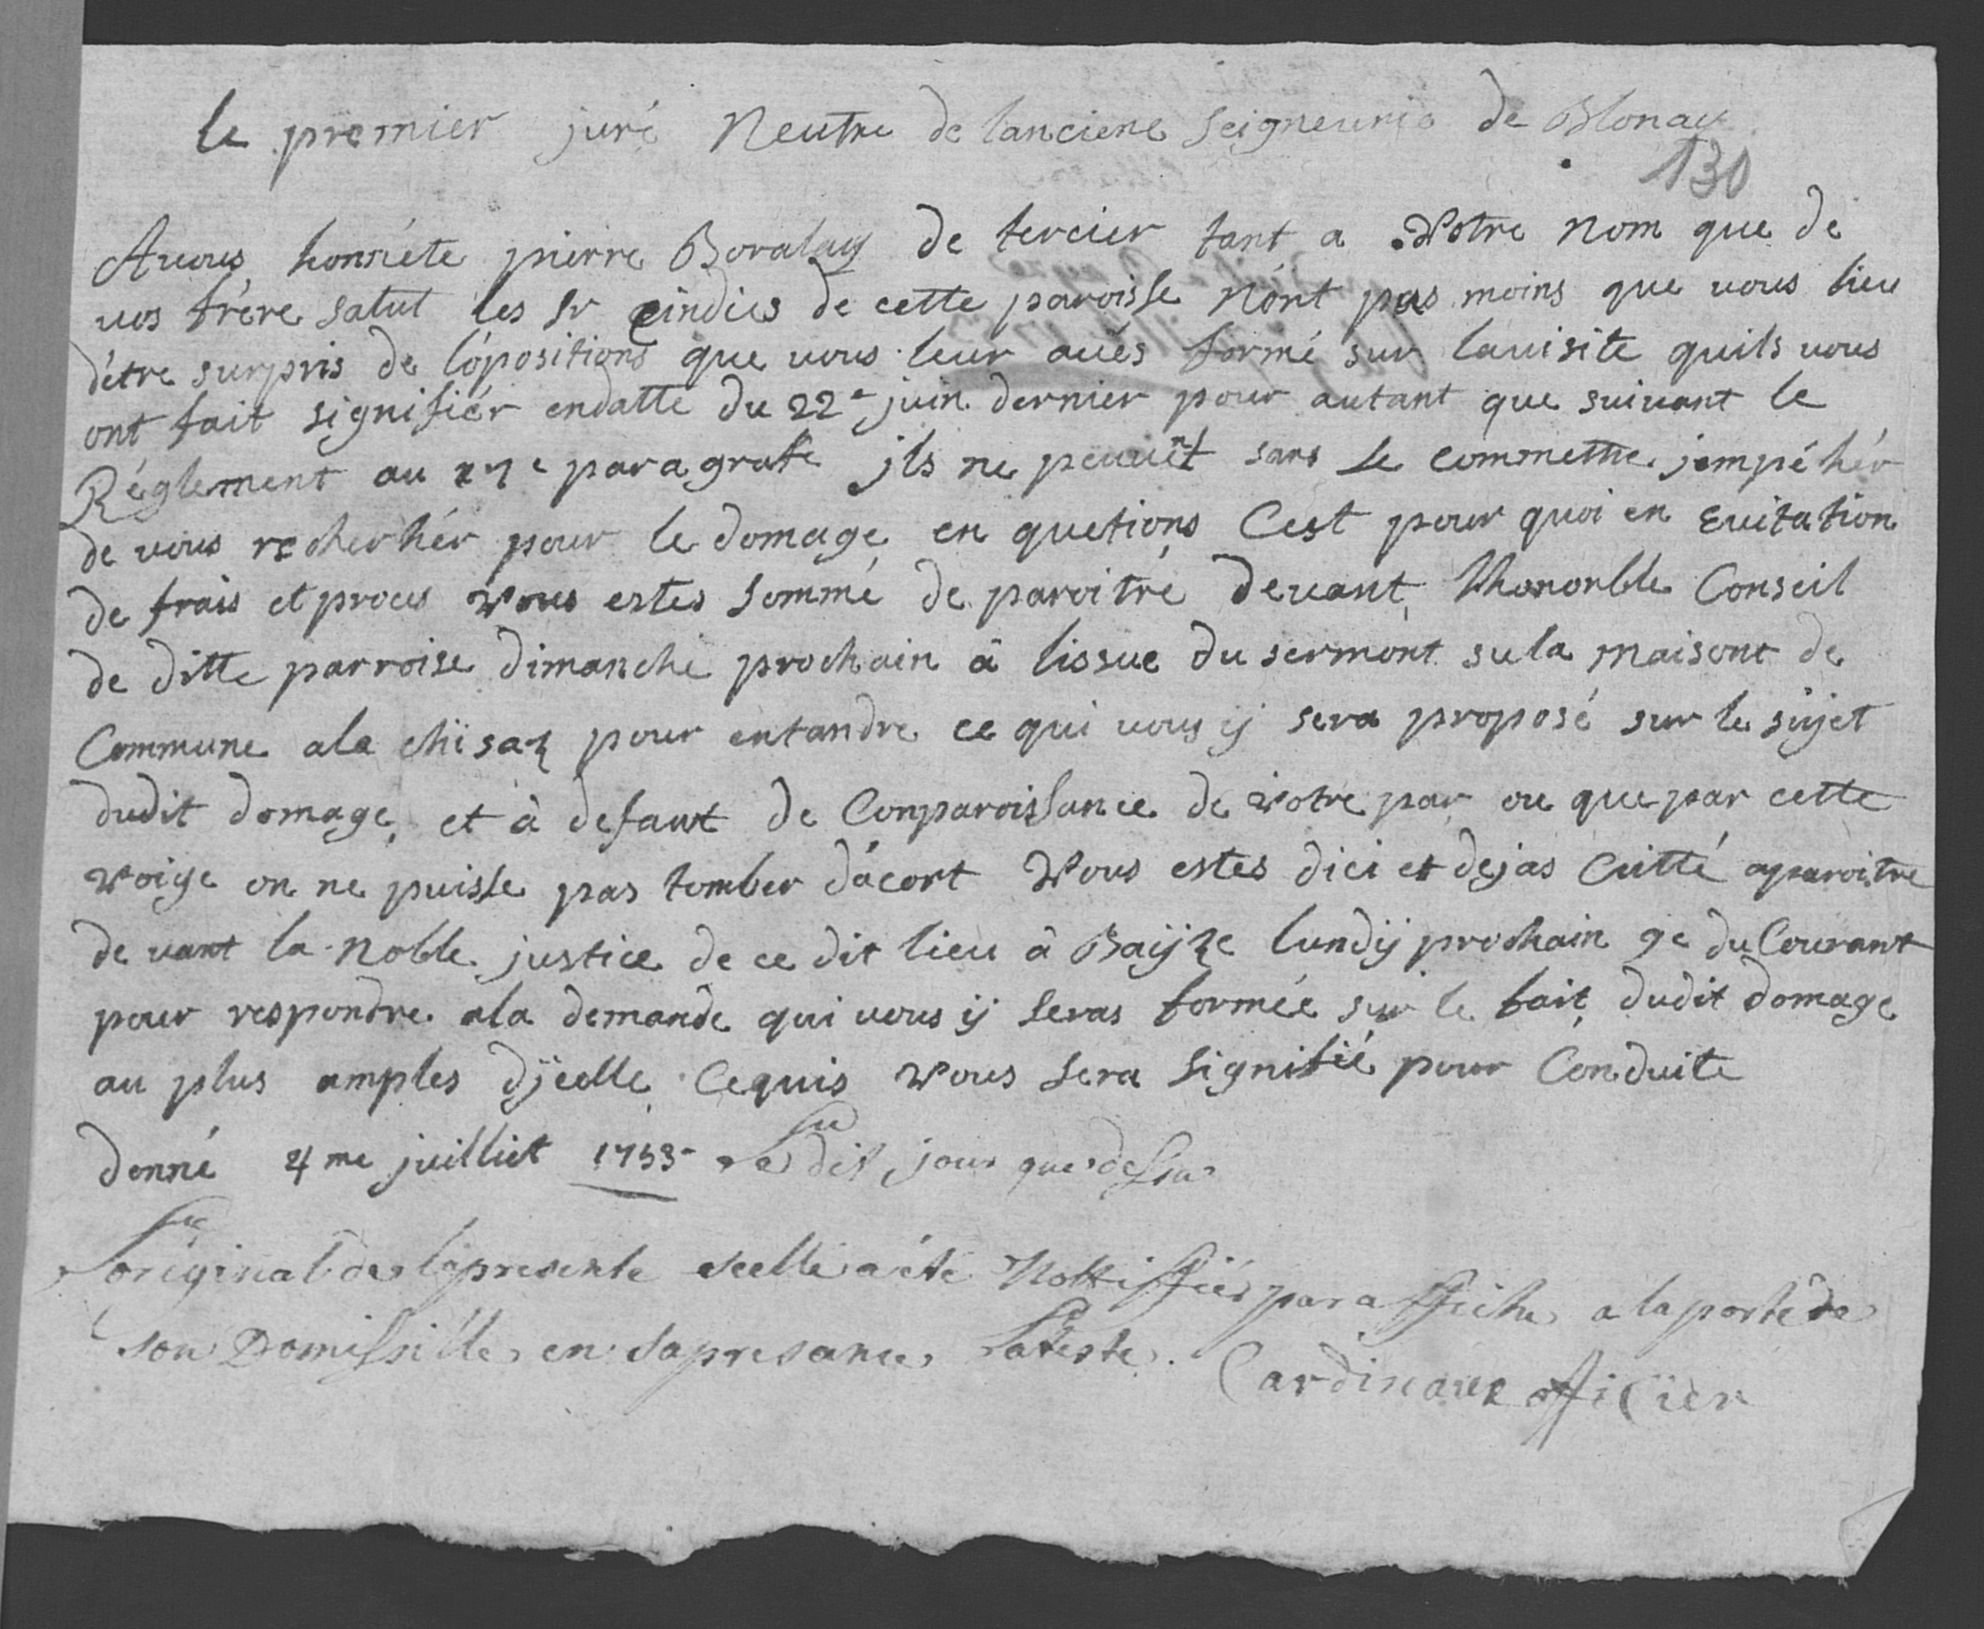 le premier juré Neutre de lanciene seigneurie de Blonay
130
Auous honnéte pierre Boralay de tercier tant a Votre nom que de
vos frére salut les Sr cindics de cette paroisse nónt pas moins que vous lieu
détre surpris de lópositions que vous leur aués formé sur lauisite quils vous
ont fait signifiér endatte du 22e juin dernier pour autant que suivant le
Réglement au 17e paragrafe jls ne peuuent sans se commettre jempéhér
de vous recherhér pour le domage en quetions Cest pour quoi en Euitation
de frais et proces vous estes sommé de paroitré deuant lhonorble Conseil
de ditte parroise dimanche prochain â lissue du sermont sula maisont de
Commune ala chisaz pour entandre ce qui vous ÿ sera proposé sur le sujet
dudit domage, et à defaut de Conparoissance de votre par ou que par cette
voiye on ne puisse pas tomber dácort Vous estes dici et dejas Citté aparoitre
de uant la noble justice de ce dit lieu â Baÿze lundÿ prochain 9e du Courant
pour respondre ala demande qui vous ÿ seras formée sur le fait dudit domage
au plus amples djcelle Cequis vous sera signifié pour Conduite
donné 4me juilliet 1753 Le dit jour que dessu
Loriginal de la presente scellé a été Nottiffiée par affiche a la porte de
son Domissille en sa presance Lateste.
Cardinaux officier